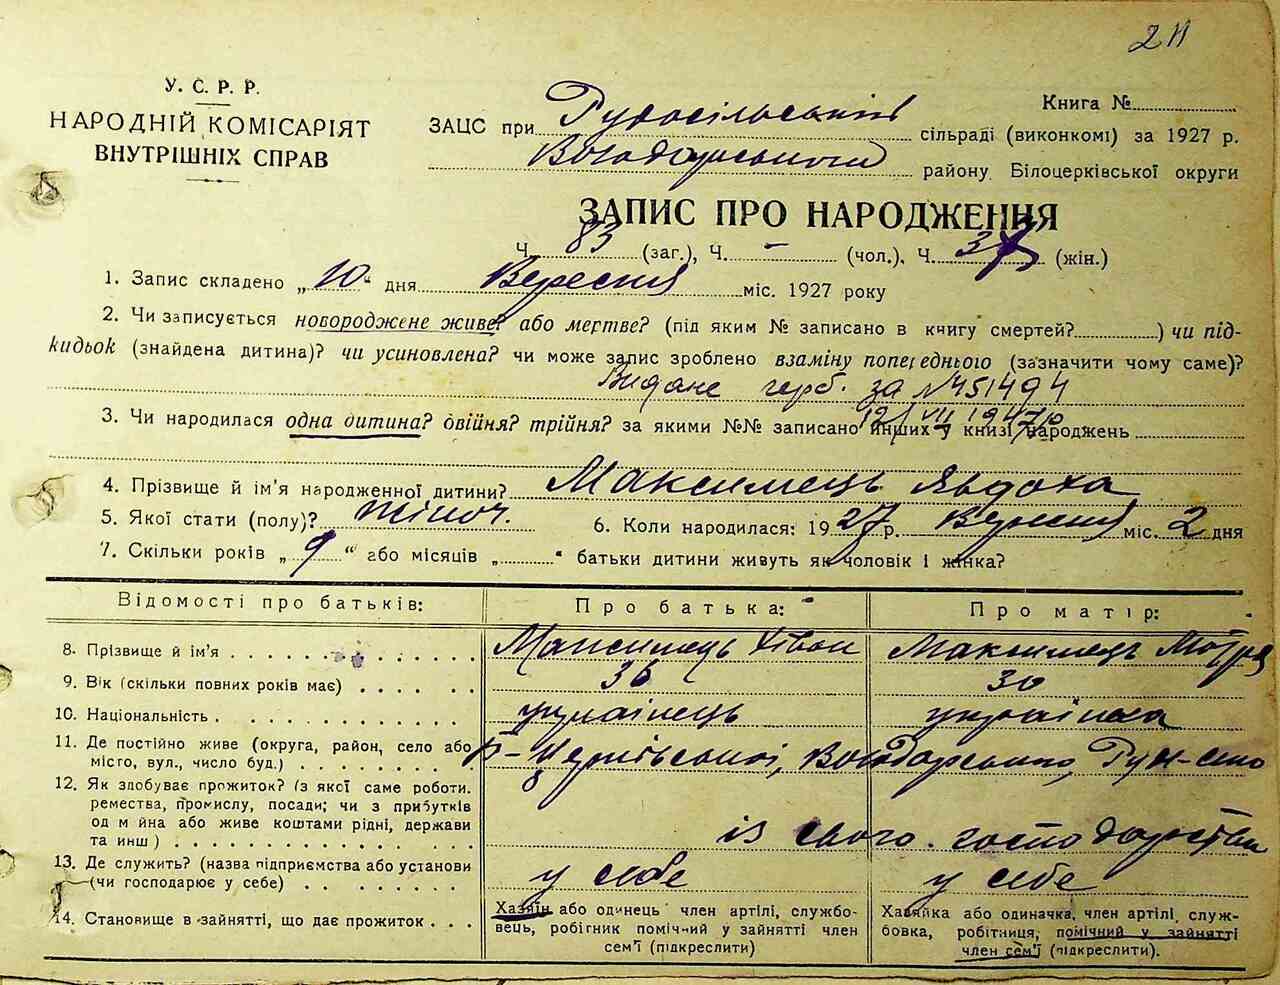 211
У. С. Р. Р.
НАРОДНІЙ КОМІСАРІЯТ
ВНУТРІШНІХ СПРАВ
Книга №
ЗАЦС при Рудосільській сільраді (виконкомі) за 1927 р.
Володарського району Білоцерківської округи
ЗАПИС ПРО НАРОДЖЕННЯ
Ч. 83 (заг.), Ч. – (чол.), Ч. (жін.)
1. Запис складено „10“ дня Вересня міс. 1927 року
2. Чи записується новороджене живе? або мертве? (під яким № записано в книгу смертей? ) чи під-
кидьок (знайдена дитина)? чи усиновлена? чи може запис зроблено взаміну попереднього (зазначити чому саме)?
Видане герб. за №451494
12/VII 1947р
3. Чи народилася одна дитина? двійня? трійня? за якими №№ записано инших у книзі народжень
4. Прізвище й ім'я народженної дитини? Максимець Явдоха
5. Якої стати (полу)? жіноч. 6. Коли народилася: 1927 р. Вересня міс. 2 дня
7. Скільки років „9“ або місяців „ “ батьки дитини живуть як чоловік і жінка?
Відомості про батьків: Про батька: Про матір:
8. Прізвище й ім'я Максимець Іван Максимець Мотря
9. Вік (скільки повних років має) 36 30
10. Національність українець українка
11. Де постійно живе (округа, район, село або
місто, вул., число буд.) Б-Церківської, Володарського, Руд-село
12. Як здобуває прожиток? (з якої саме роботи.
ремества, промислу, посади; чи з прибутків
од майна або живе коштами рідні, держави
та инш) із свого господарства
13. Де служить? (назва підприємства або установи
(чи господарює у себе) у себе у себе
14. Становище в зайнятті, що дає прожиток
Хазяїн або одинець член артілі, службо-
вець, робітник помічний у зайнятті член
сем'ї (підкреслити)
Хазяйка або одиначка, член артілі, служ-
бовка, робітниця, помічний у зайнятті
член сем'ї (підкреслити).